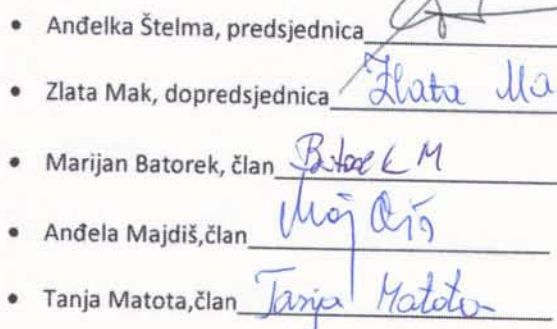 • Anđelka Štelma, predsjednica
• Zlata Mak, dopredsjednica Zlata Ma
• Marijan Batorek, član Batorek M
• Anđela Majdiš,član
• Tanja Matota,član Tanja Matota